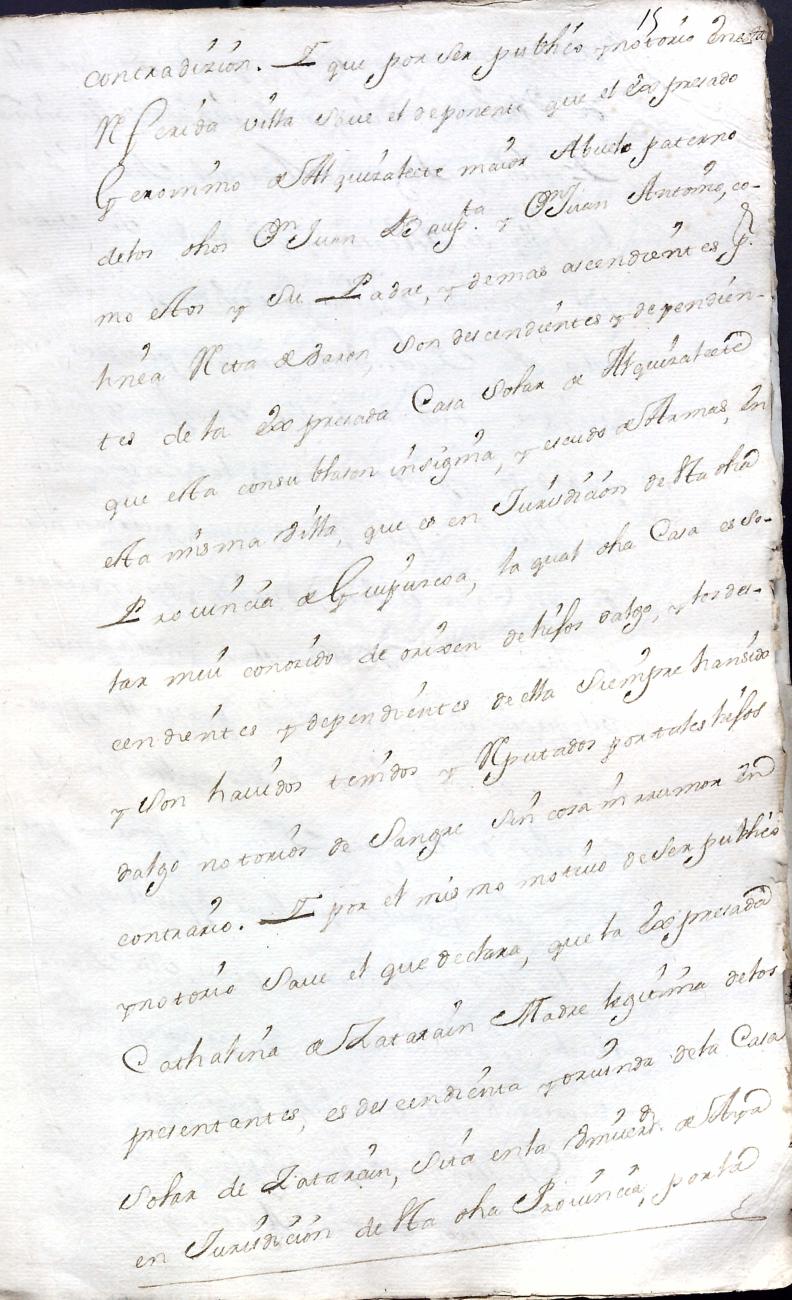 15
contradizion. Y que por ser publico y notorio en esta
Referida villa save el deponente que el expresado
Geronimo de Alquizalete maior Abuelo paterno
delos dhos Dn Juan Baupta. y Dn Juan Antonio, co-
mo estos y su Padre, y demas ascendientes p.r
linea Recta de Varon, son descendientes y dependien-
tes de la expresada Casa solar de Alquizalete
que esta consu blason insignia, y escudo de Armas, en
esta misma villa, que es en Jurisdicion de esta dha
Provincia de Guipuzcoa, la qual dha Casa es so-
lar mui conozido de orixen de hijos dalgo, y los des-
cendientes y dependientes de ella siempre hansido
y son havidos tenidos y Reputados por tales hijos
dalgo notorios de Sangre sin cosa ni rrumor en
contrario. Y por el mismo motivo de ser publico
y notorio save el que declara, que la expresada
Cathalina de Zatarain Madre legitima delos
presentantes, es descendienta y oriunda dela Casa
solar de Zatarain, sita en la Vniversd. de Aya
en Jurisdicion de esta dha Provincia, por la